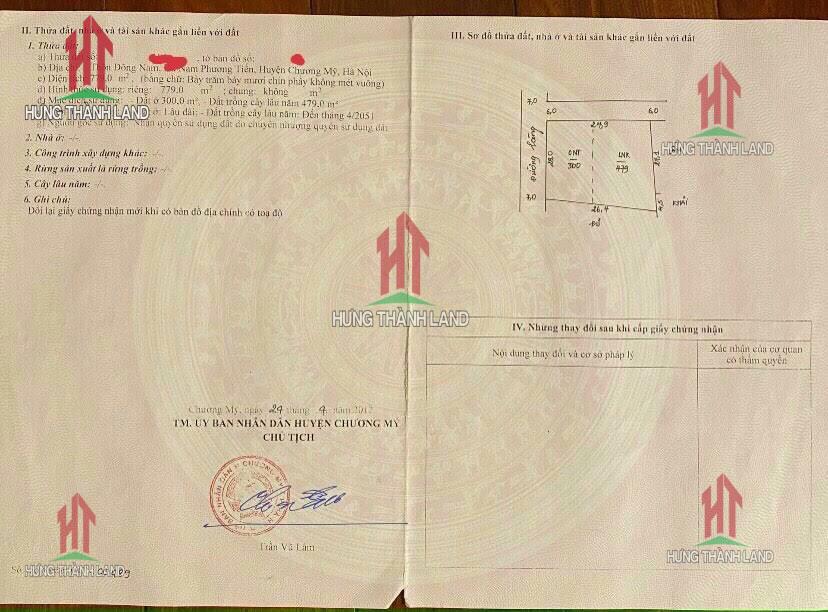 II. Thửa đất, nhà ở và tài sản khác gắn liền với đất
1. Thửa đất:
a) Thửa đất số: , tờ bản đồ số:
b) Địa chỉ: Thôn Đông Nam, Nam Phương Tiến, Huyện Chương Mỹ, Hà Nội
c) Diện tích: 779.0 m² (bằng chữ: Bảy trăm bảy mươi chín phẩy không mét vuông)
d) Hình thức sử dụng: riêng: 779.0 m²; chung: không m²
đ) Mục đích sử dụng: - Đất ở 300.0 m². - Đất trồng cây lâu năm 479.0 m²
Đất ở: Lâu dài; - Đất trồng cây lâu năm: Đến tháng 4/2051
g) Nguồn gốc sử dụng: Nhận quyền sử dụng đất do chuyển nhượng quyền sử dụng đất
2. Nhà ở: -/-
3. Công trình xây dựng khác: -/-
4. Rừng sản xuất là rừng trồng: -/-
5. Cây lâu năm: -/-
6. Ghi chú:
Đổi lại giấy chứng nhận mới khi có bản đồ địa chính có toạ độ
Chương Mỹ, ngày 24 tháng 4 năm 2012
TM. ỦY BAN NHÂN DÂN HUYỆN CHƯƠNG MỸ
CHỦ TỊCH
Trần Vũ Lâm
III. Sơ đồ thửa đất, nhà ở và tài sản khác gắn liền với đất
7,0
6,0
6,0
27,9
Đường Làng
28,0
ONT
300
LNK
479
7,0
26,4
4,5
KHẢI
IV. Những thay đổi sau khi cấp giấy chứng nhận
Nội dung thay đổi và cơ sở pháp lý
Xác nhận của cơ quan
có thẩm quyền
HT
HƯNG THÀNH LAND
HT
HƯNG THÀNH LAND
HT
HƯNG THÀNH LAND
HT
HƯNG THÀNH LAND
HT
HƯNG THÀNH LAND